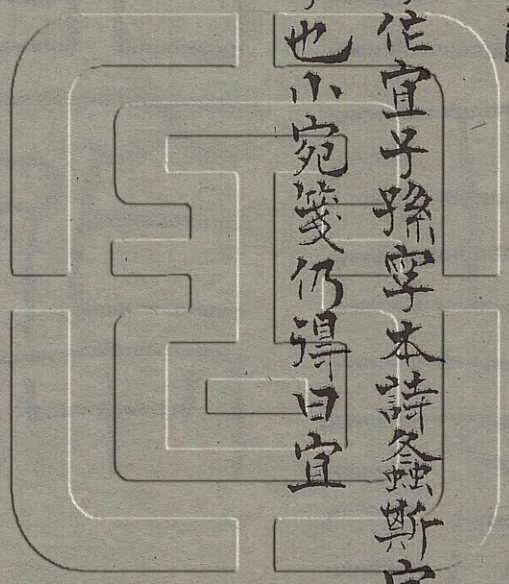 作宜子孫字本詩螽斯宜
也小宛箋仍得曰宜